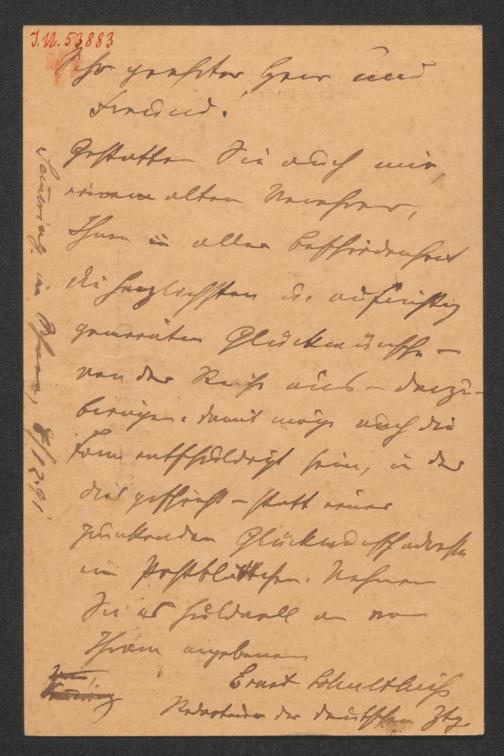 J.N. 53883
Sehr geehrter Herr und
Freund!
Gestatten Sie auch mir,
einem alten Verehrer,
Ihnen in aller Bescheidenheit
die herzlichsten u. aufrichtig
gemeinten Glückwünsche –
von der Reise aus – darzu-
bringen. Damit möge auch die
Form entschuldigt sein, in der
dies geschieht – statt einer
prunkenden Glückwunschadresse
ein Postblättchen. Nehmen
Sie es huldvoll an von
Ihrem ergebenen
Ernst Schultheiß
Redacteur der deutschen Ztg
in 8/12.91